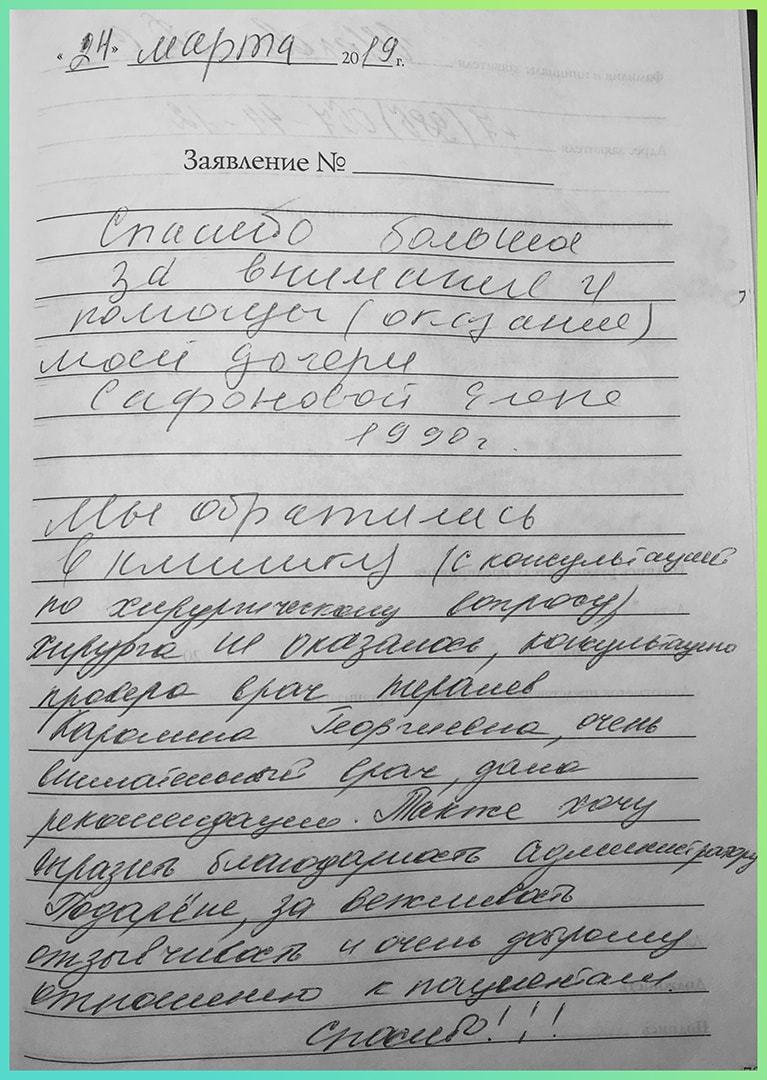 « 24 » марта 2019 г.
Заявление №
Спасибо большое
за внимание и
помощь (оказание)
моей дочери
Сафоновой Елене
1990 г.
Мы обратились
в клинику (с консультацией
по хирургическому вопросу)
хирурга не оказалось, консультацию
провера врач Тералиев
Каролина Георгиевна, очень
внимательный врач, дала
рекомендацию. Также хочу
выразить благодарность администратору
за вежливость
отзывчивость и очень доброму
отношению к пациентам.
Спасибо!!!